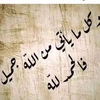 و كل ما يأتي من الله جميل
فالحمد لله